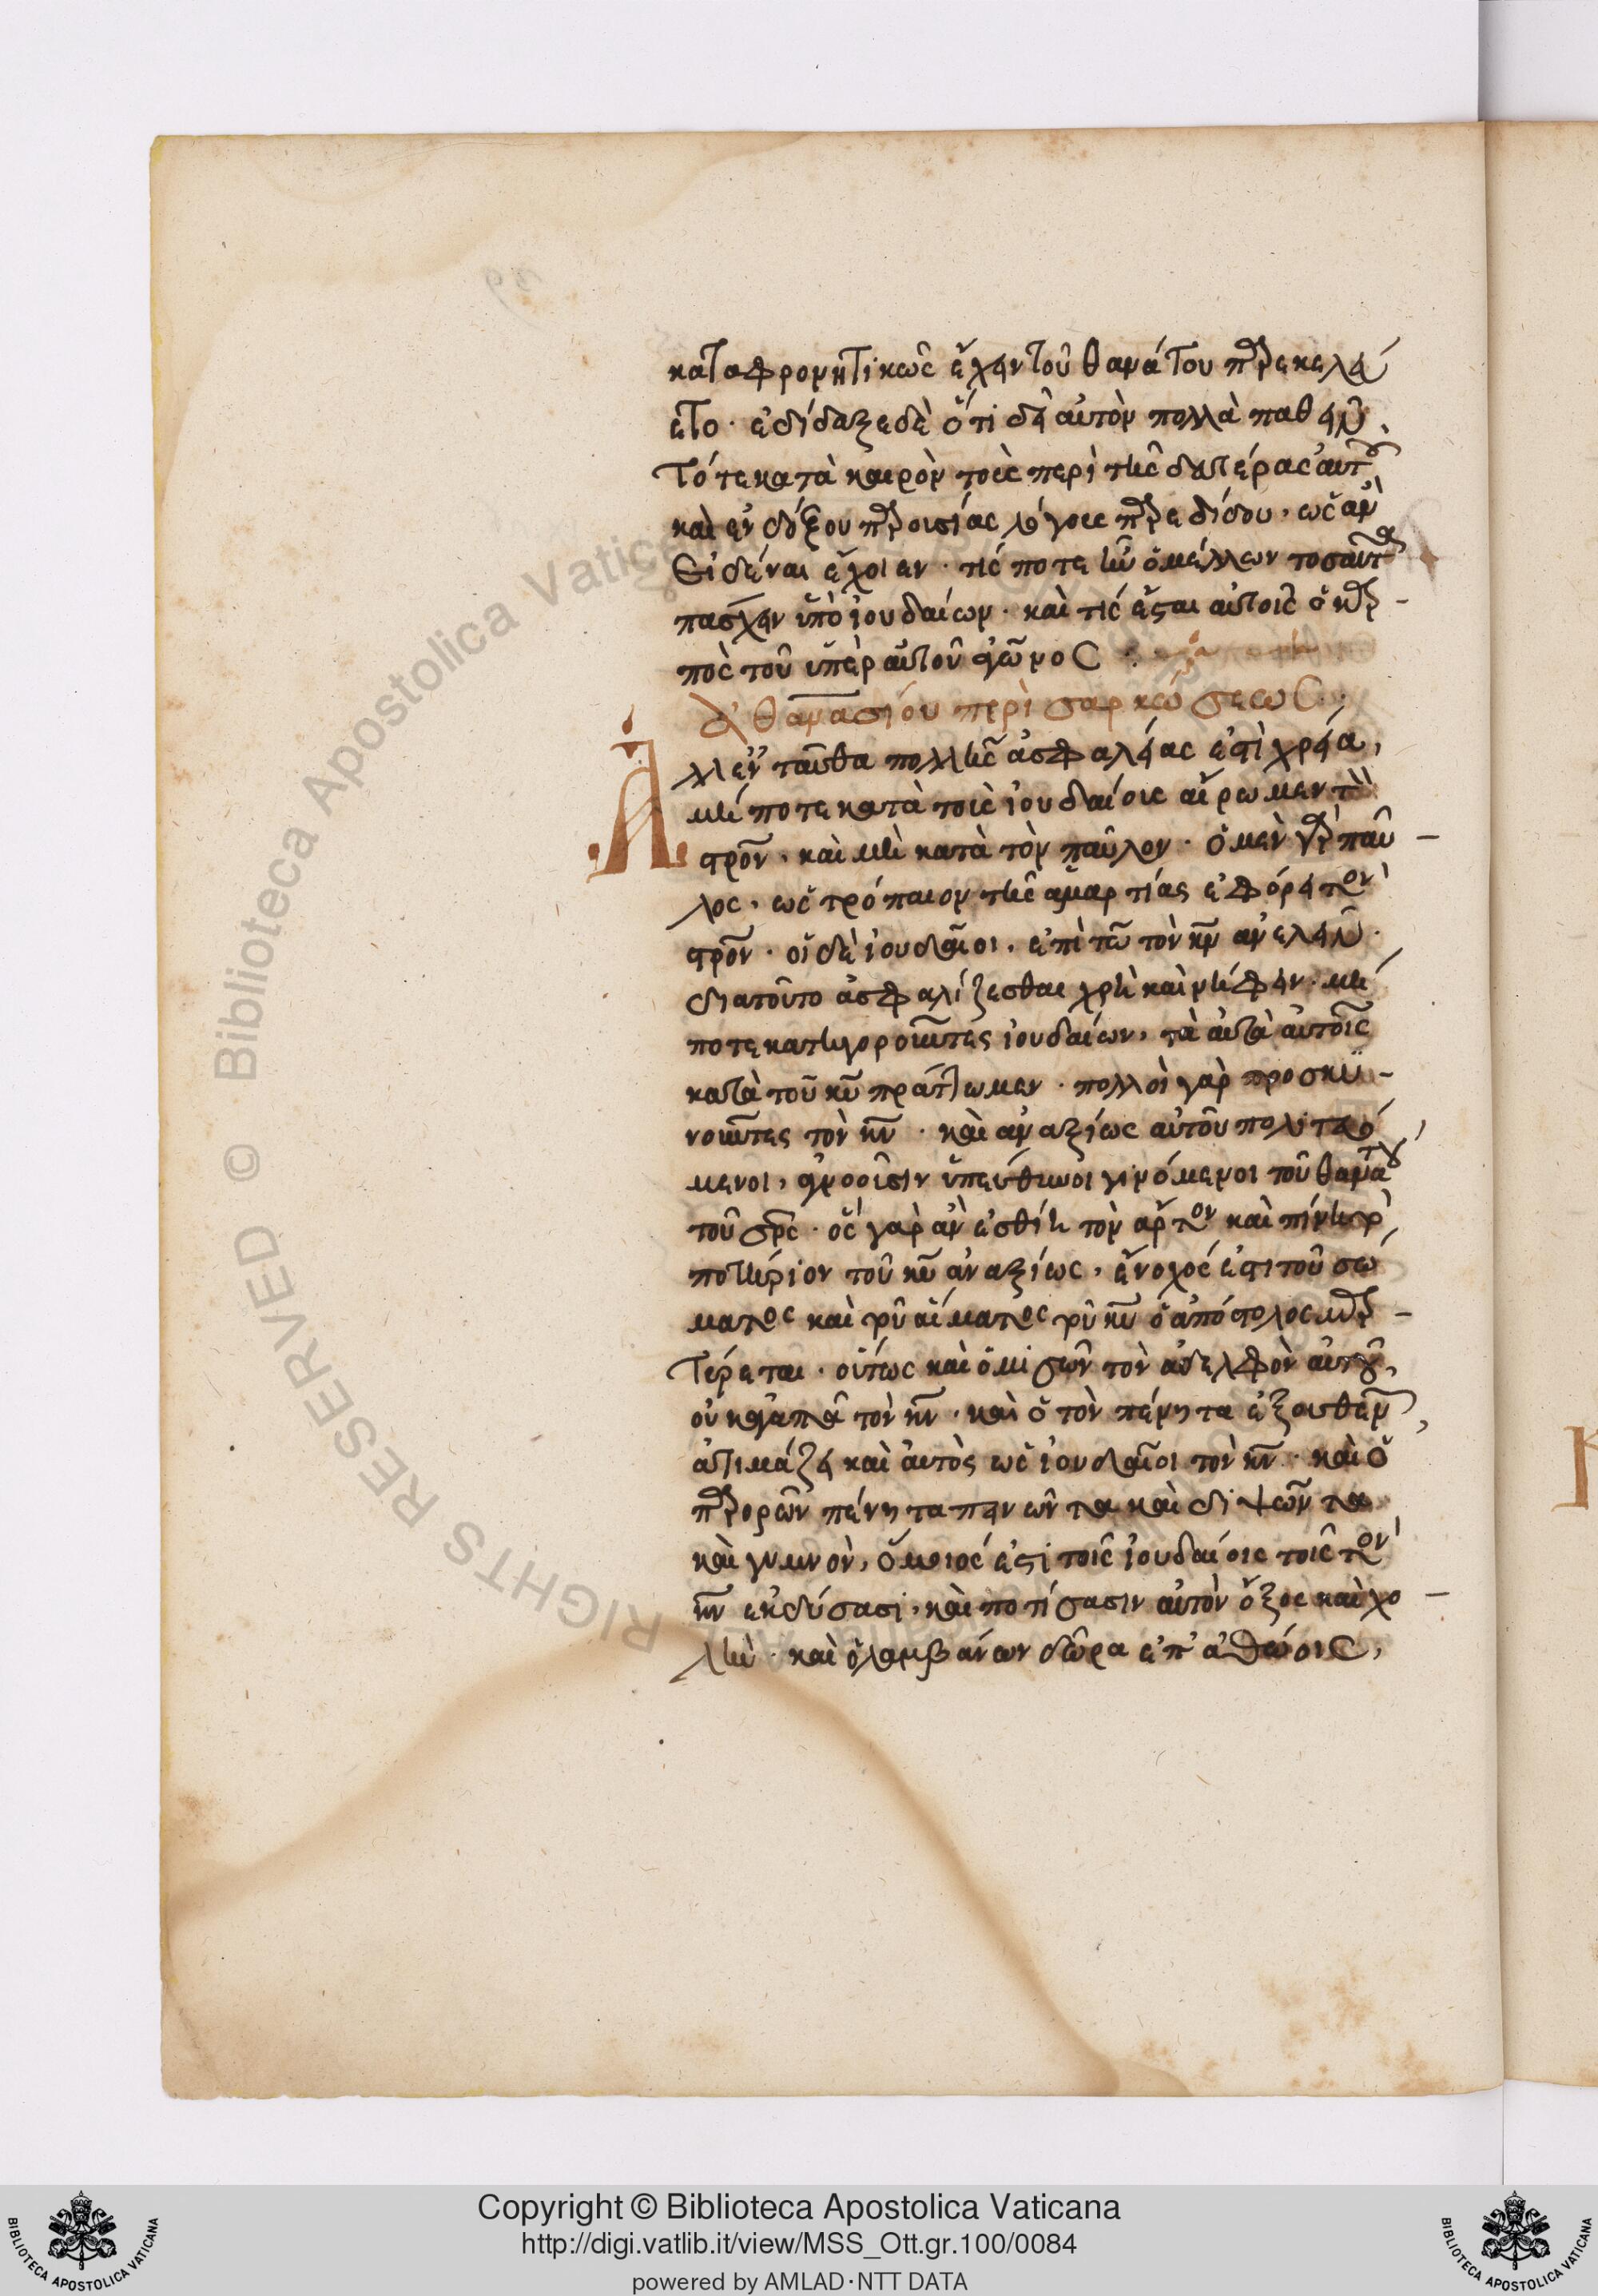 καταφρονητικῶς ἔχειν τοῦ θανάτου πρεκελεύ
ετο · ἐδίδαξε δὲ ὅτι δεῖ αὐτὸν πολλὰ παθεῖν.
Τότε κατὰ καιρὸν τοὺς περὶ τῆς δευτέρας αὐτοῦ
καὶ ἐνδόξου προυσίας λόγους πρεδίδου, ὡς ἂν
εἰδέναι ἔχοιεν · τίς ποτε ἦν ὁ μέλλων τοσαῦτα
πάσχειν ὑπὸ ἰουδαίων · καὶ τίς ἔσται αὐτοῖς ὁ κρ-
πὸς τοῦ ὑπὲρ αὐτοῦ ἀγῶνος
Ἀθανασίου περὶ σαρκώσεως :
Ἀλλ' ἐνταῦθα πολλῆς ἀσφαλείας ἐστὶ χρεία,
μή ποτε κατὰ τοὺς ἰουδαίους αἴρωμεν τὸν
στρον, καὶ μὴ κατὰ τὸν παῦλον · ὁ μὲν γὰρ παῦ-
λος, ὡς τρόπαιον τῆς ἁμαρτίας ἐφόρει τὸν
στρον · οἱ δὲ ἰουδαῖοι, ἐπὶ τῶ τὸν κν ἀνελεῖν ·
διατοῦτο ἀσφαλίζεσθαι χρὴ καὶ νήφειν · μή
ποτε κατηγοροῦντες ἰουδαίων, τὰ αὐτὰ αὐτοῖς
κατὰ τοῦ κυ πράττωμεν · πολλοὶ γὰρ προσκυ-
νοῦντες τὸν κν · καὶ ἀναξίως αὐτοῦ πολιτευό
μενοι, ἀγνοοῦσιν ὑπεύθυνοι γινόμενοι τοῦ θανάτου
τοῦ σρς · ὃς γὰρ ἂν ἐσθίη τὸν ἄρτον καὶ πίνη τὸ
ποτήριον τοῦ κυ ἀναξίως, ἔνοχός ἐστι τοῦ σώ
ματος καὶ τοῦ αἵματος τοῦ κυ ὁ ἀπόστολος μρ-
τύρεται · οὕτως καὶ ὁ μισῶν τὸν ἀδελφὸν αὐτοῦ,
οὐκ ἀγαπᾶ τὸν κν · καὶ ὁ τὸν πένητα ἐξουθενῶν,
ἀτιμάζει καὶ αὐτὸς ὡς ἰουδαῖοι τὸν κν · καὶ ὁ
προρῶν πένητα πεινῶντα καὶ διψῶντα
καὶ γυμνὸν, ὅμοιός ἐστι τοῖς ἰουδαίοις τοῖς τὸν
κν ἐκδύσασι, καὶ ποτίσασιν αὐτὸν ὄξος καὶ χο-
λὴν · καὶ ὁ λαμβάνων δῶρα ἐπ' ἀθώοις,
Copyright © Biblioteca Apostolica Vaticana
http://digi.vatlib.it/view/MSS_Ott.gr.100/0084
powered by AMLAD·NTT DATA
BIBLIOTECA APOSTOLICA VATICANA
BIBLIOTECA APOSTOLICA VATICANA